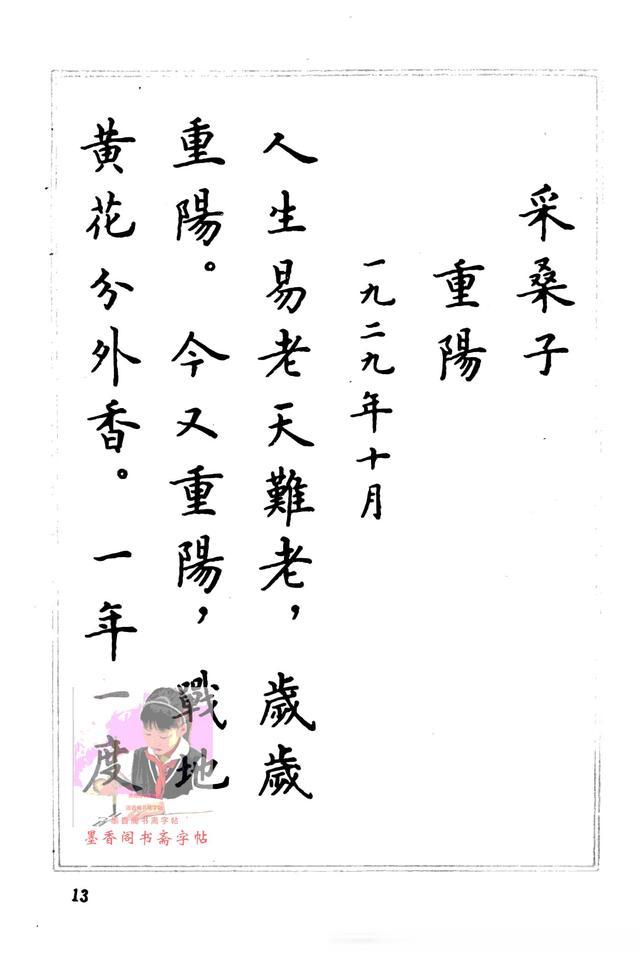 采桑子
重陽
一九二九年十月
人生易老天難老，歲歲
重陽。今又重陽，戰地
黄花分外香。一年一度
墨香阁书斋字帖
墨香阁书斋字帖
13